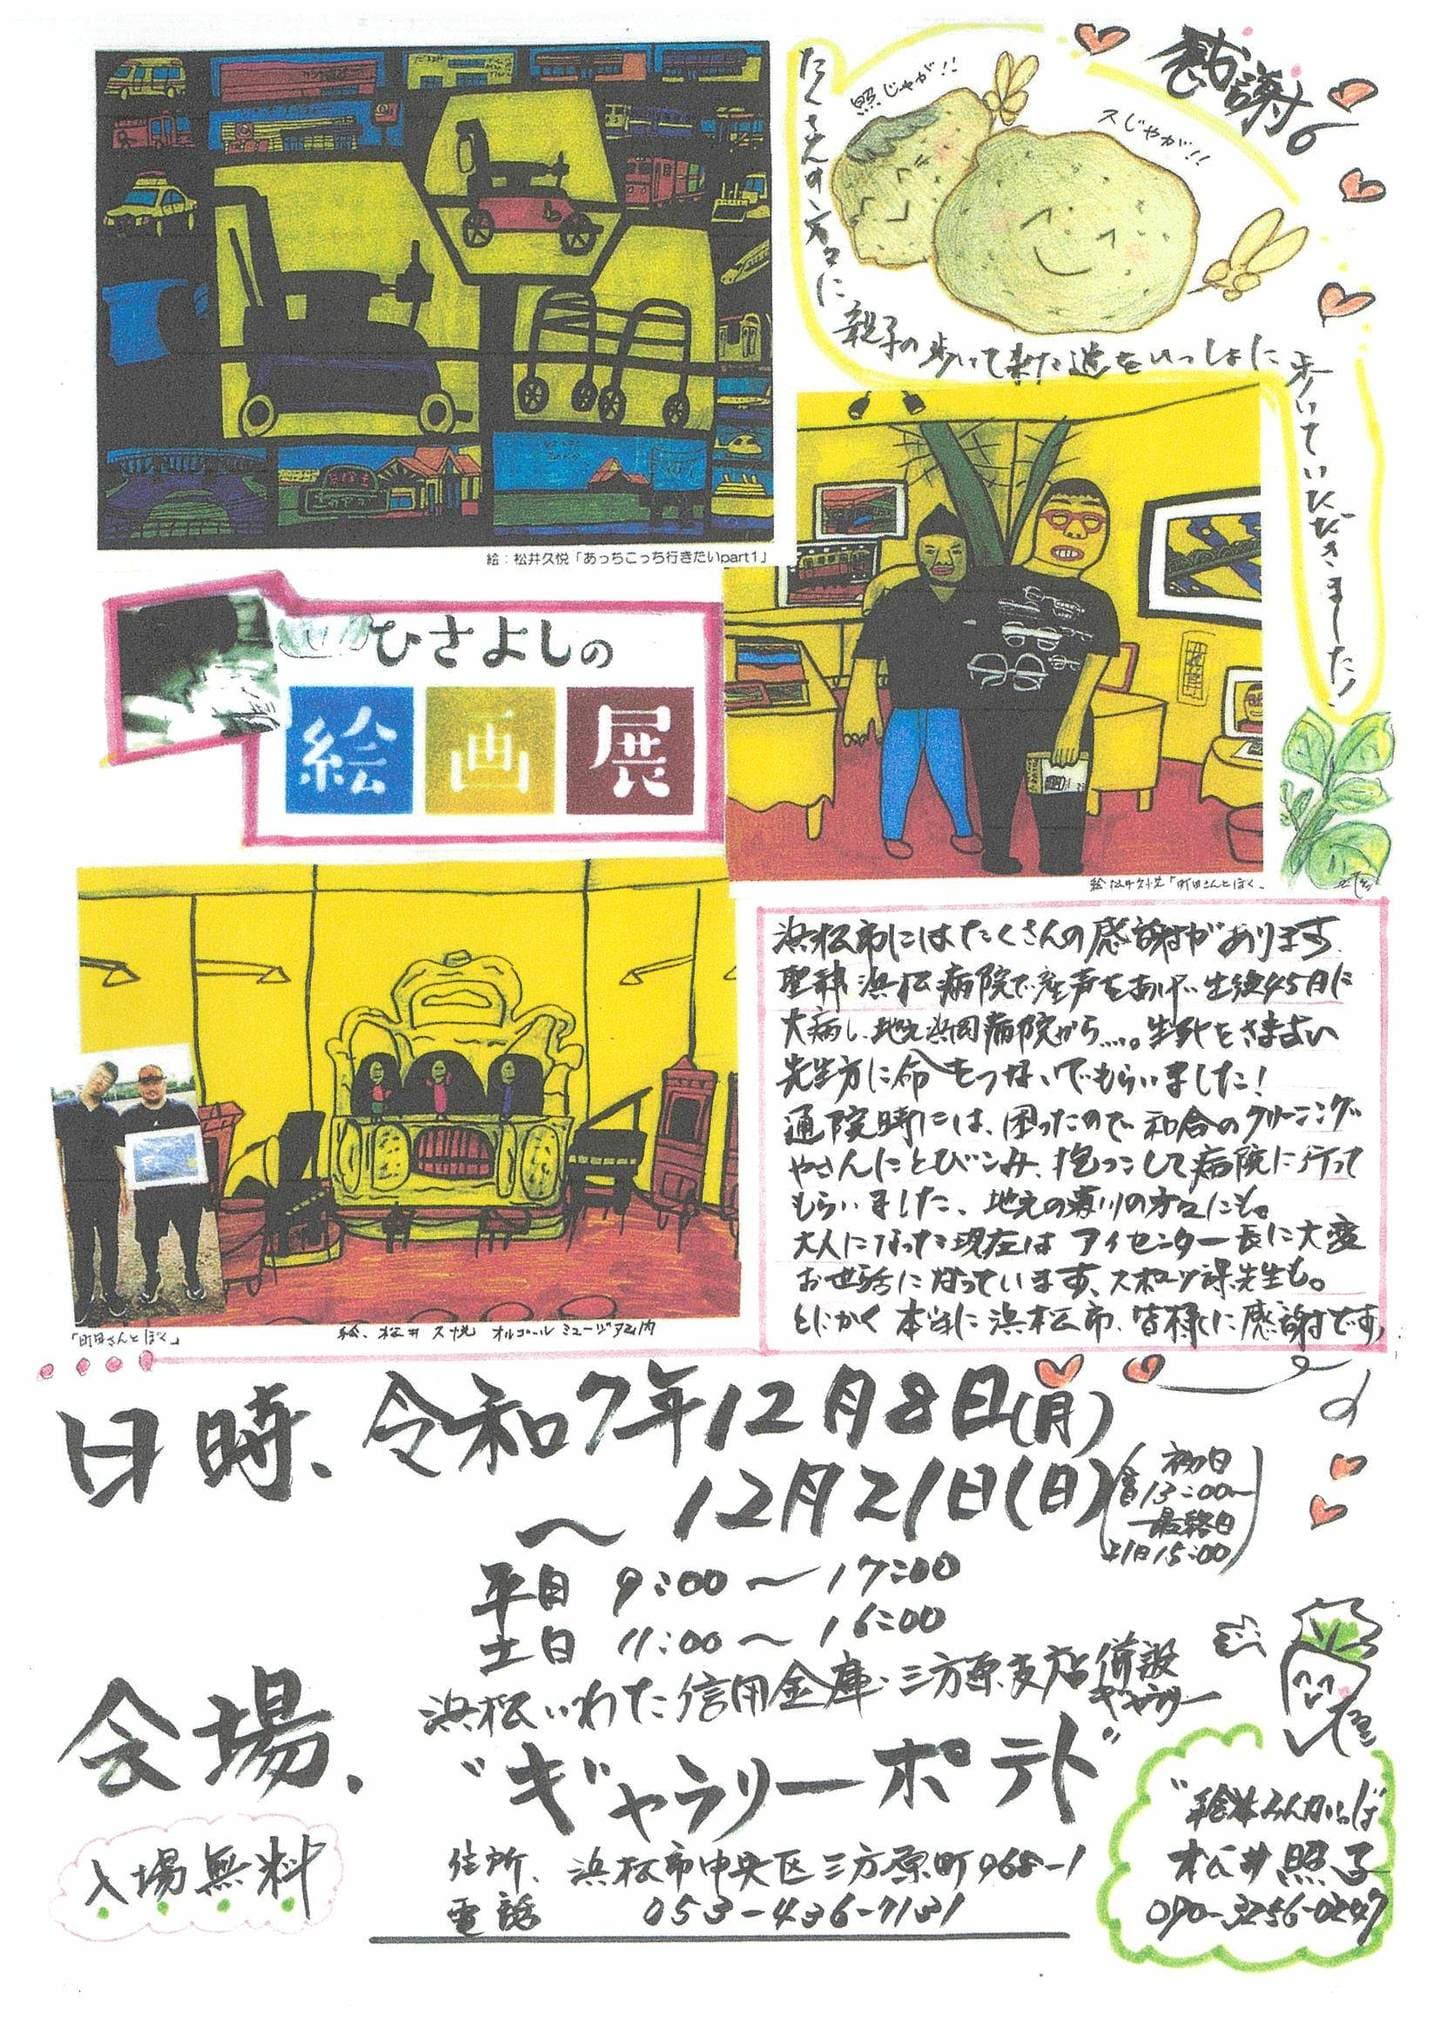 感謝
照じゃが!!
スじゃが!!
たくさんの方々に
親子の歩いて来た道をいっしょに
歩いていただきました!
絵：松井久悦「あっちこっち行きたいpart1」
ひさよしの
絵画展
絵 松井久悦「町田さんとぼく」
「町田さんとぼく」
絵、松井久悦 オルゴールミュージアム内
浜松市にはたくさんの感謝があります
聖隷浜松病院で産声をあげ生後45日に
大病し、地元浜岡病院から……。生死をさまよい
先生方に命をつないでもらいました!
通院時には、困ったので和合のクリーニング
やさんにとびこみ、抱っこして病院に行って
もらいました、地元の菊川の方々にも。
大人になった現在はアイセンター長に大変
お世話になっています、スポーツ課先生も。
とにかく本当に浜松市、皆様に感謝です
日時、令和7年12月8日(月)
～12月21日(日)
初日
13:00～
最終日
15:00
平日 9:00～17:00
土日 11:00～16:00
会場、
浜松いわた信用金庫・三方原支店併設
ギャラリー
"ギャラリーポテト"
入場無料
住所、浜松市中央区三方原町968-1
電話 053-436-7131
"絵本みんかいっぱ"
松井照子
090-3256-0247